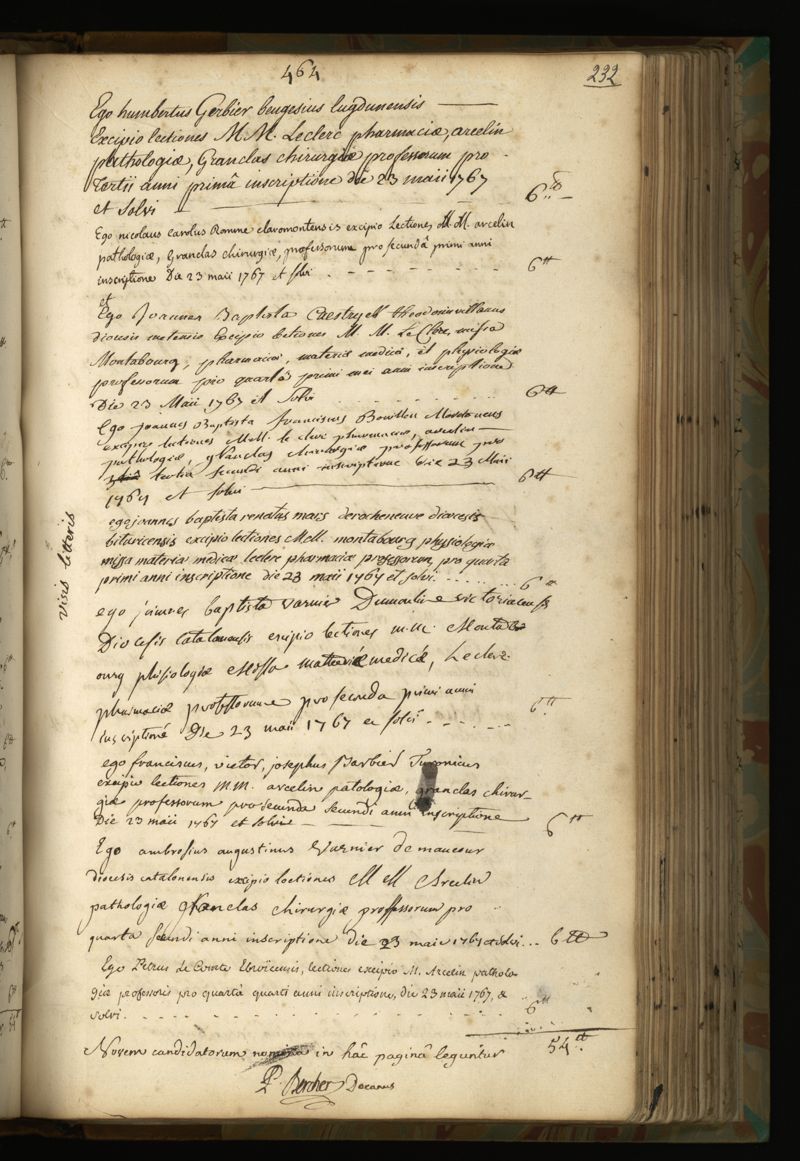 464
232
Ego humbertus Gerbier beugesius lugdunensis
Excipio lectiones M.M. Leclerc pharmaciæ, arcelin
pathologiæ, Granclas chirurgiæ professorum pro
tertii anni primâ inscriptione die 23 maii 1767
et solvi 6.tt
Ego nicolaus carolus Romme claromontensis excipio Lectiones M.M. arcelin
pathologiæ, Granclas chirurgiæ, professorum pro secundâ primi anni
inscriptione Die 23 maii 1767 et solvi 6tt
et
Ego Joannes Baptista theodonisvillanus
diocesis metensis Excipio lectiones M. M. Le Clerc, missa
Montabourg, pharmaciæ, materiæ medicæ, et physiologiæ
professorum pro quartâ primi mei anni inscriptione
Die 23 Maii 1767 et solvi 6tt
Ego joannes Baptista franciscus Bouillon
excipio lectiones Mell. le clerc pharmaciæ, arcelin
pathologiæ, granclas chirurgiæ professorum pro
tertia secundi anni inscriptione die 23 Maii
1767 et solvi 6tt
ego joannes baptista renatus maes derocheneuve diocesis
bituricensis excipio lectiones Mell. montabourg physiologiæ
missa materiæ medicæ leclerc pharmaciæ professorum, pro quarta
primi anni inscriptione die 23 maii 1767 et solvi 6tt
visis litteris
ego joannes baptista varnier Dumoutier victoriacensis
Diocesis catalonensis excipio lectiones m.m. Montab
ourg phisiologiæ Missa materiæ medicæ, Leclerc
pharmaciæ professorum pro seconda primi anni
inscriptioné Die 23 maii 1767 et solvi 6tt
ego franciscus, victor, josephus Barbier Turonicus
excipio lectiones M.M. arcelin patologiæ, granclas chirur-
giæ professorum pro secunda secundi anni inscriptione
Die 23 maii 1767 et solvi 6tt
Ego ambrosius augustinus Varnier de maucour
diocesis catalonensis excipio lectiones M M Arcelin
pathologiæ granclas chirurgiæ professorum pro
quarta secundi anni inscriptione die 23 maii 1767 et solvi... 6tt
Ego Petrus Le Comte Ebroicensis, lectiones excipio M. Arcelin patholo
giæ professoris pro quartâ quarti anni inscriptione, die 23 maii 1767, &
solvi. 6tt
Novem candidatorum nomina in hâc paginâ leguntur 54tt
P. Bercher Decanus